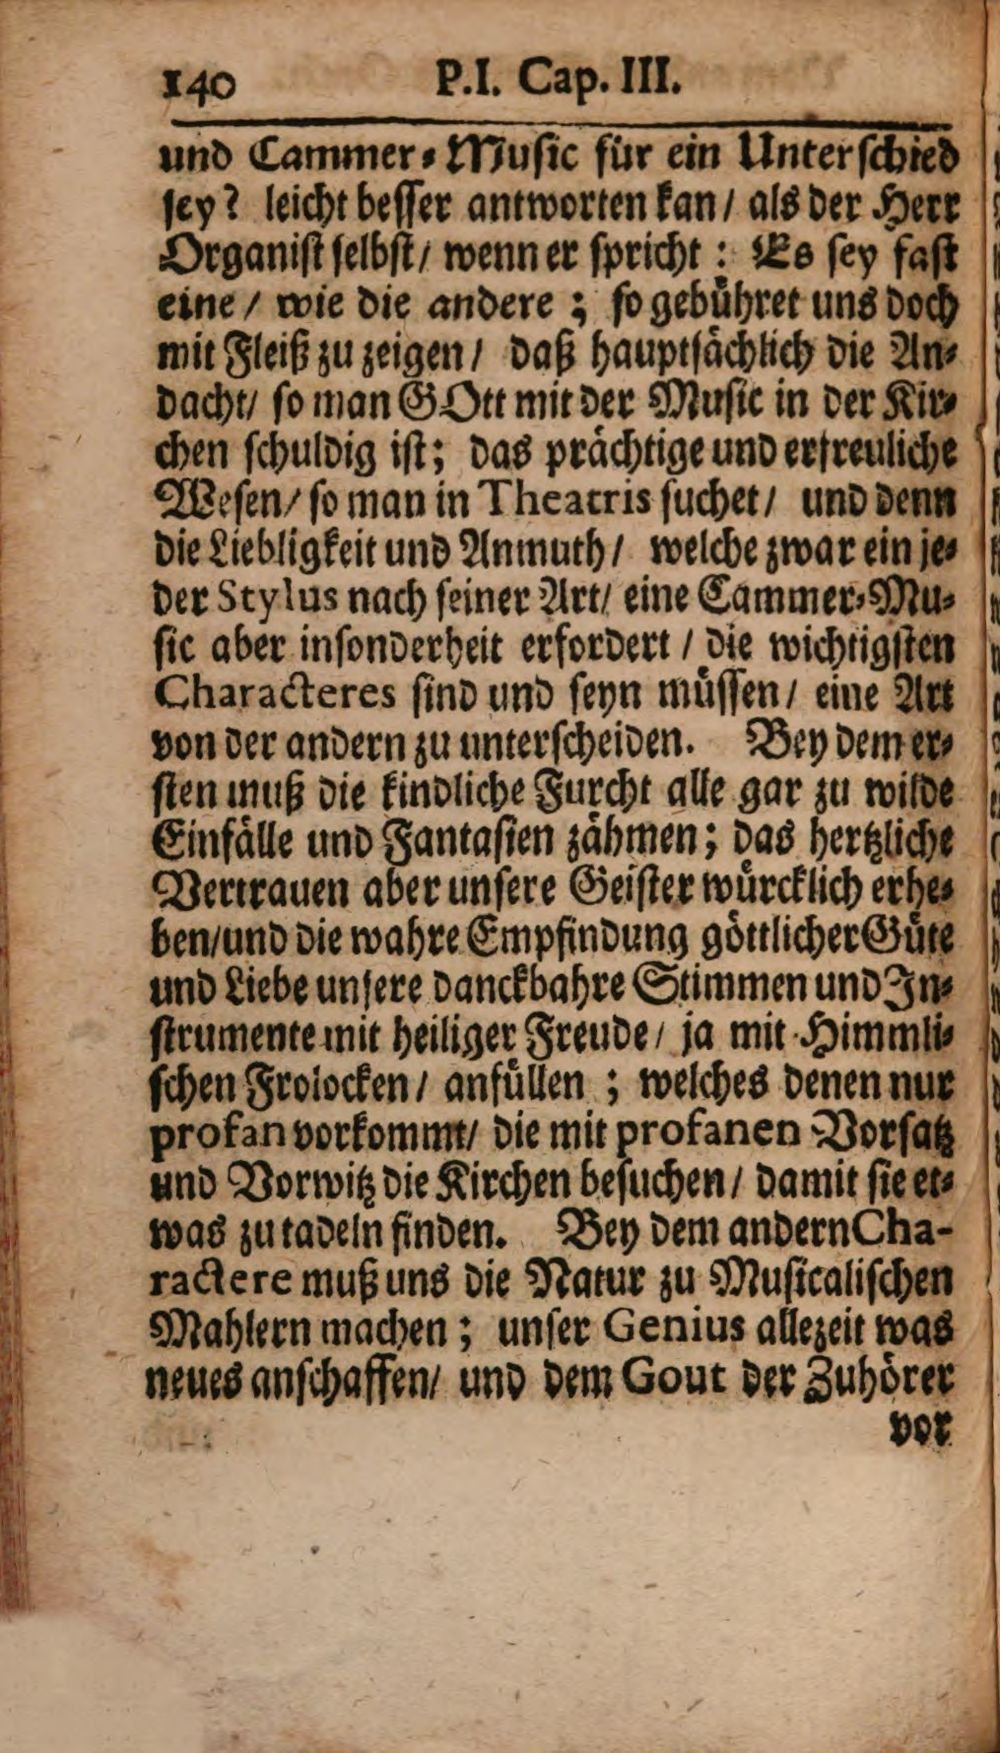 140 P.I. Cap. III.
und Cammer-Music für ein Unterschied
sey? leicht besser antworten kan/ als der Herr
Organist selbst/ wenn er spricht: Es sey fast
eine/ wie die andere; so gebühret uns doch
mit Fleiß zu zeigen/ daß hauptsächlich die An-
dacht/ so man GOtt mit der Music in der Kir-
chen schuldig ist; das prächtige und erfreuliche
Wesen/ so man in Theatris suchet/ und denn
die Liebligkeit und Anmuth/ welche zwar ein je-
der Stylus nach seiner Art/ eine Cammer-Mu-
sic aber insonderheit erfordert/ die wichtigsten
Characteres sind und seyn müssen/ eine Art
von der andern zu unterscheiden. Bey dem er-
sten muß die kindliche Furcht alle gar zu wilde
Einfälle und Fantasien zähmen; das hertzliche
Vertrauen aber unsere Geister würcklich erhe-
ben/ und die wahre Empfindung göttlicher Güte
und Liebe unsere danckbahre Stimmen und In-
strumente mit heiliger Freude/ ja mit Himmli-
schen Frolocken/ anfüllen; welches denen nur
profan vorkommt/ die mit profanen Vorsatz
und Vorwitz die Kirchen besuchen/ damit sie et-
was zu tadeln finden. Bey dem andern Cha-
ractere muß uns die Natur zu Musicalischen
Mahlern machen; unser Genius allezeit was
neues anschaffen/ und dem Gout der Zuhörer
vor